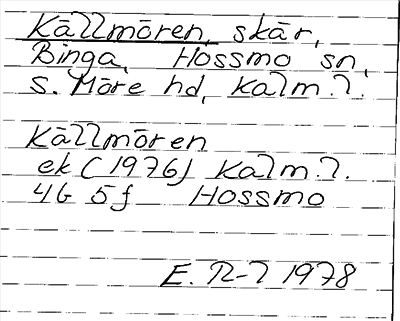 Källmören, skär,
Binga, Hossmo sn,
S. Möre hd, Kalm. l.
Källmören
ek (1976) Kalm. l.
4G 5f Hossmo
E. R-l 1978